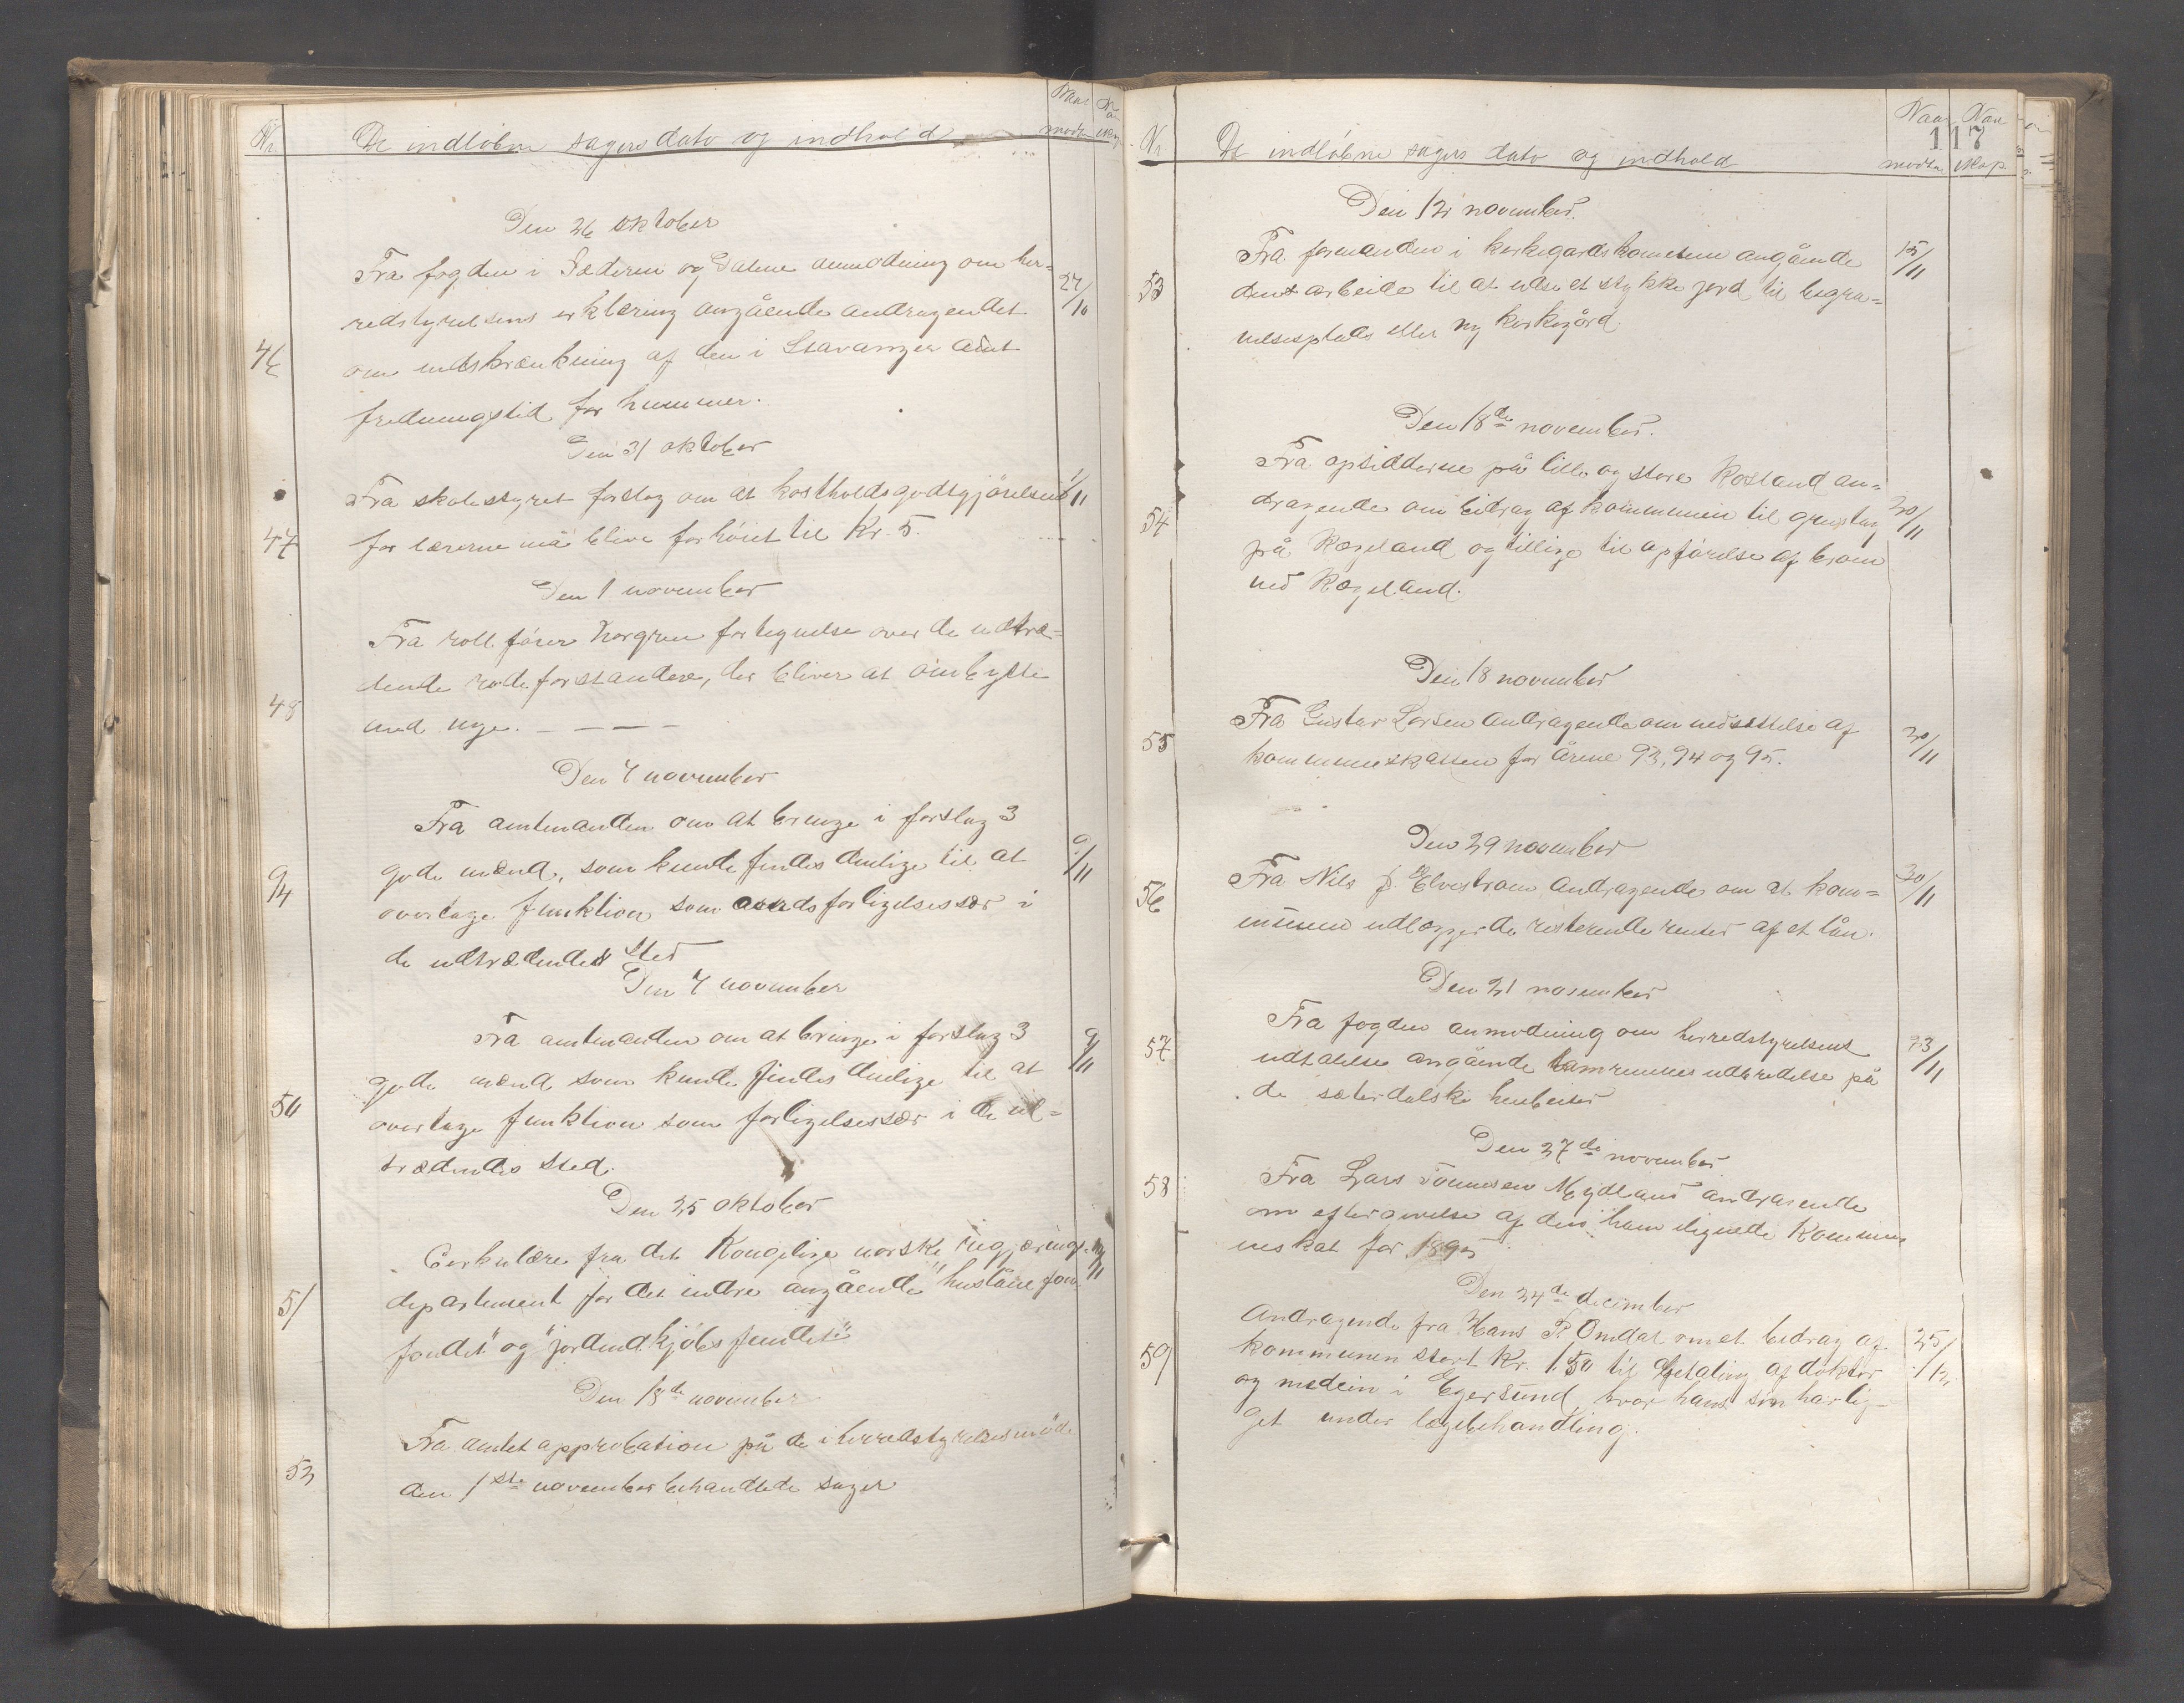 Nr. De indløbne sagers dato og indhold Naar modt.
Den 26 oktober
Fra fogden i Jæderen og Dalene anmodning om her=
redstyrelsens erklæring angående andragendet 27/10
46 om indskrænkning af den i Stavanger amt
fredningstid for hummer.
Den 31 oktober
Fra skolestyret forslag om at kostholdsgodtgjörelsen 1/11
47 for lærerne må blive forhöiet til Kr. 5.
Den 1 november
Fra rollförer Norgren fortegnelse over de udtræ=
dende rodeforstandere, der bliver at ombytte
48 med nye. – – – –
Den 7 november
Fra amtmanden om at bringe i forslag 3
gode mænd, som kunde findes dulige til at 9/11
overtage funktion som forligelsessær i
de udtrædendes sted
Den 7 november
Fra amtmanden om at bringe i forslag 3 9/11
gode mænd som kunde findes dulige til at
50 overtage funktion som forligelsessær i de ud=
trædendes sted.
Den 25 oktober
Cirkulære fra det Kongelige norske regjerings
51 departement for det indre angående "huslåne
fondet" og "jordindkjöbsfondet"
Den 18de november
Fra amtet approbation på de i herredstyrelsesmöde
52 den 1ste november behandlede sager
117
Nr. De indløbne sagers dato og indhold Naar modt. Naar exsp.
Den 12 november.
Fra formanden i kirkegårdskomiteen angående 15/11
53 dens arbeide til at udse et stykke jord til begra=
velsesplads eller ny kirkegård.
Den 18de november.
Fra opsidderne på lille og store Rosland an=
54 dragende om bidrag af kommunen til grustag 20/11
på Rægeland og tillige til opförelse af broen
ved Rægeland.
Den 18 november
Fra Gustav Larsen andragende om nedsættelse af
55 kommuneskatten for årene 93, 94 og 95. 20/11
Den 29 november
Fra Nils J. Elvestrom andragende om at kom= 30/11
56 munen udlægger de resterende renter af et lån.
Den 21 november
Fra fogden anmodning om herredstyrelsens
57 udtalelse angående tamrenenes udbredelse på 23/11
de sæterdalske heubeiter
Den 27de november
58 Fra Lars Tönnesen Mydland andragende
om eftergivelse af den ham ilignede Kommu
neskat for 1895
Den 24de december
Andragende fra Hans P. Omdal om et bidrag af 25/12
59 kommunen stort Kr. 150 til betaling af doktor
og medcin i Egersund, hvor hans sön har lig-
get under lægebehandling.